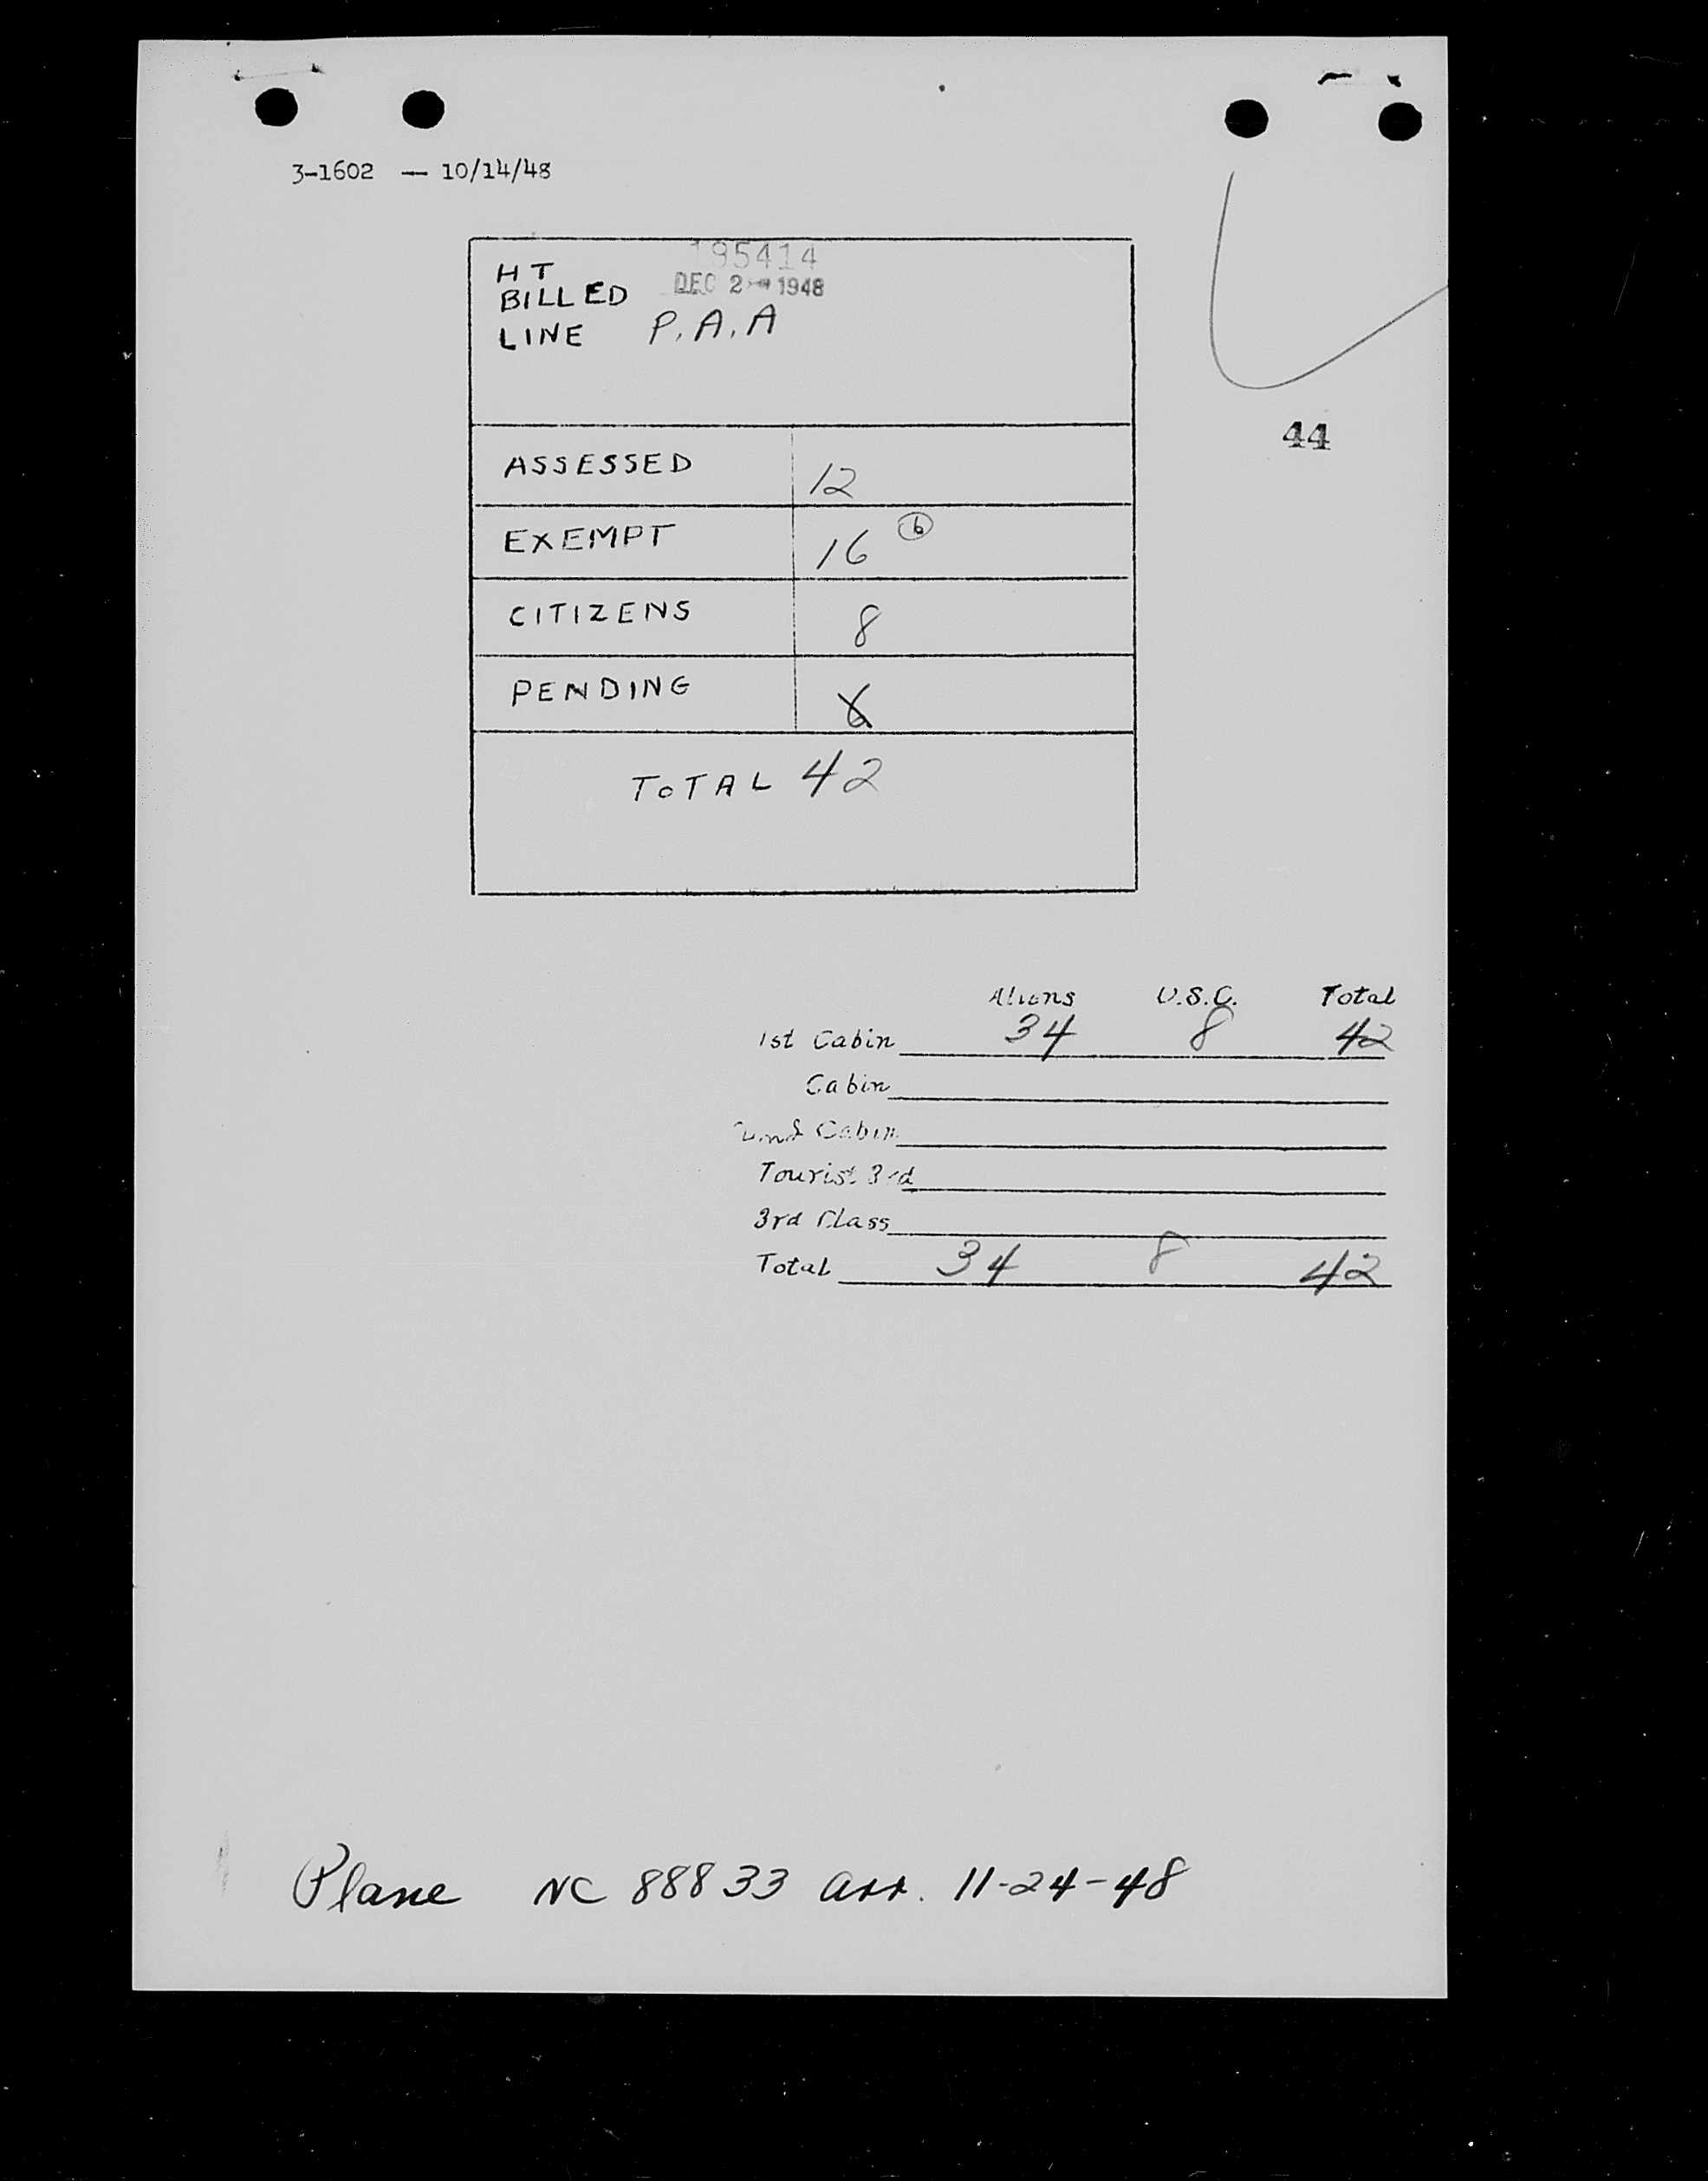 3-1602 — 10/14/48
195414
HT
BILLED DEC 2 1948
LINE P.A.A
44
ASSESSED 12
EXEMPT 16 6
CITIZENS 8
PENDING 6
TOTAL 42
Aliens U.S.C. Total
1st Cabin 34 8 42
Cabin
Cabin
Tourist 3rd
3rd Class
Total 34 8 42
Plane NC 88833 arr. 11-24-48